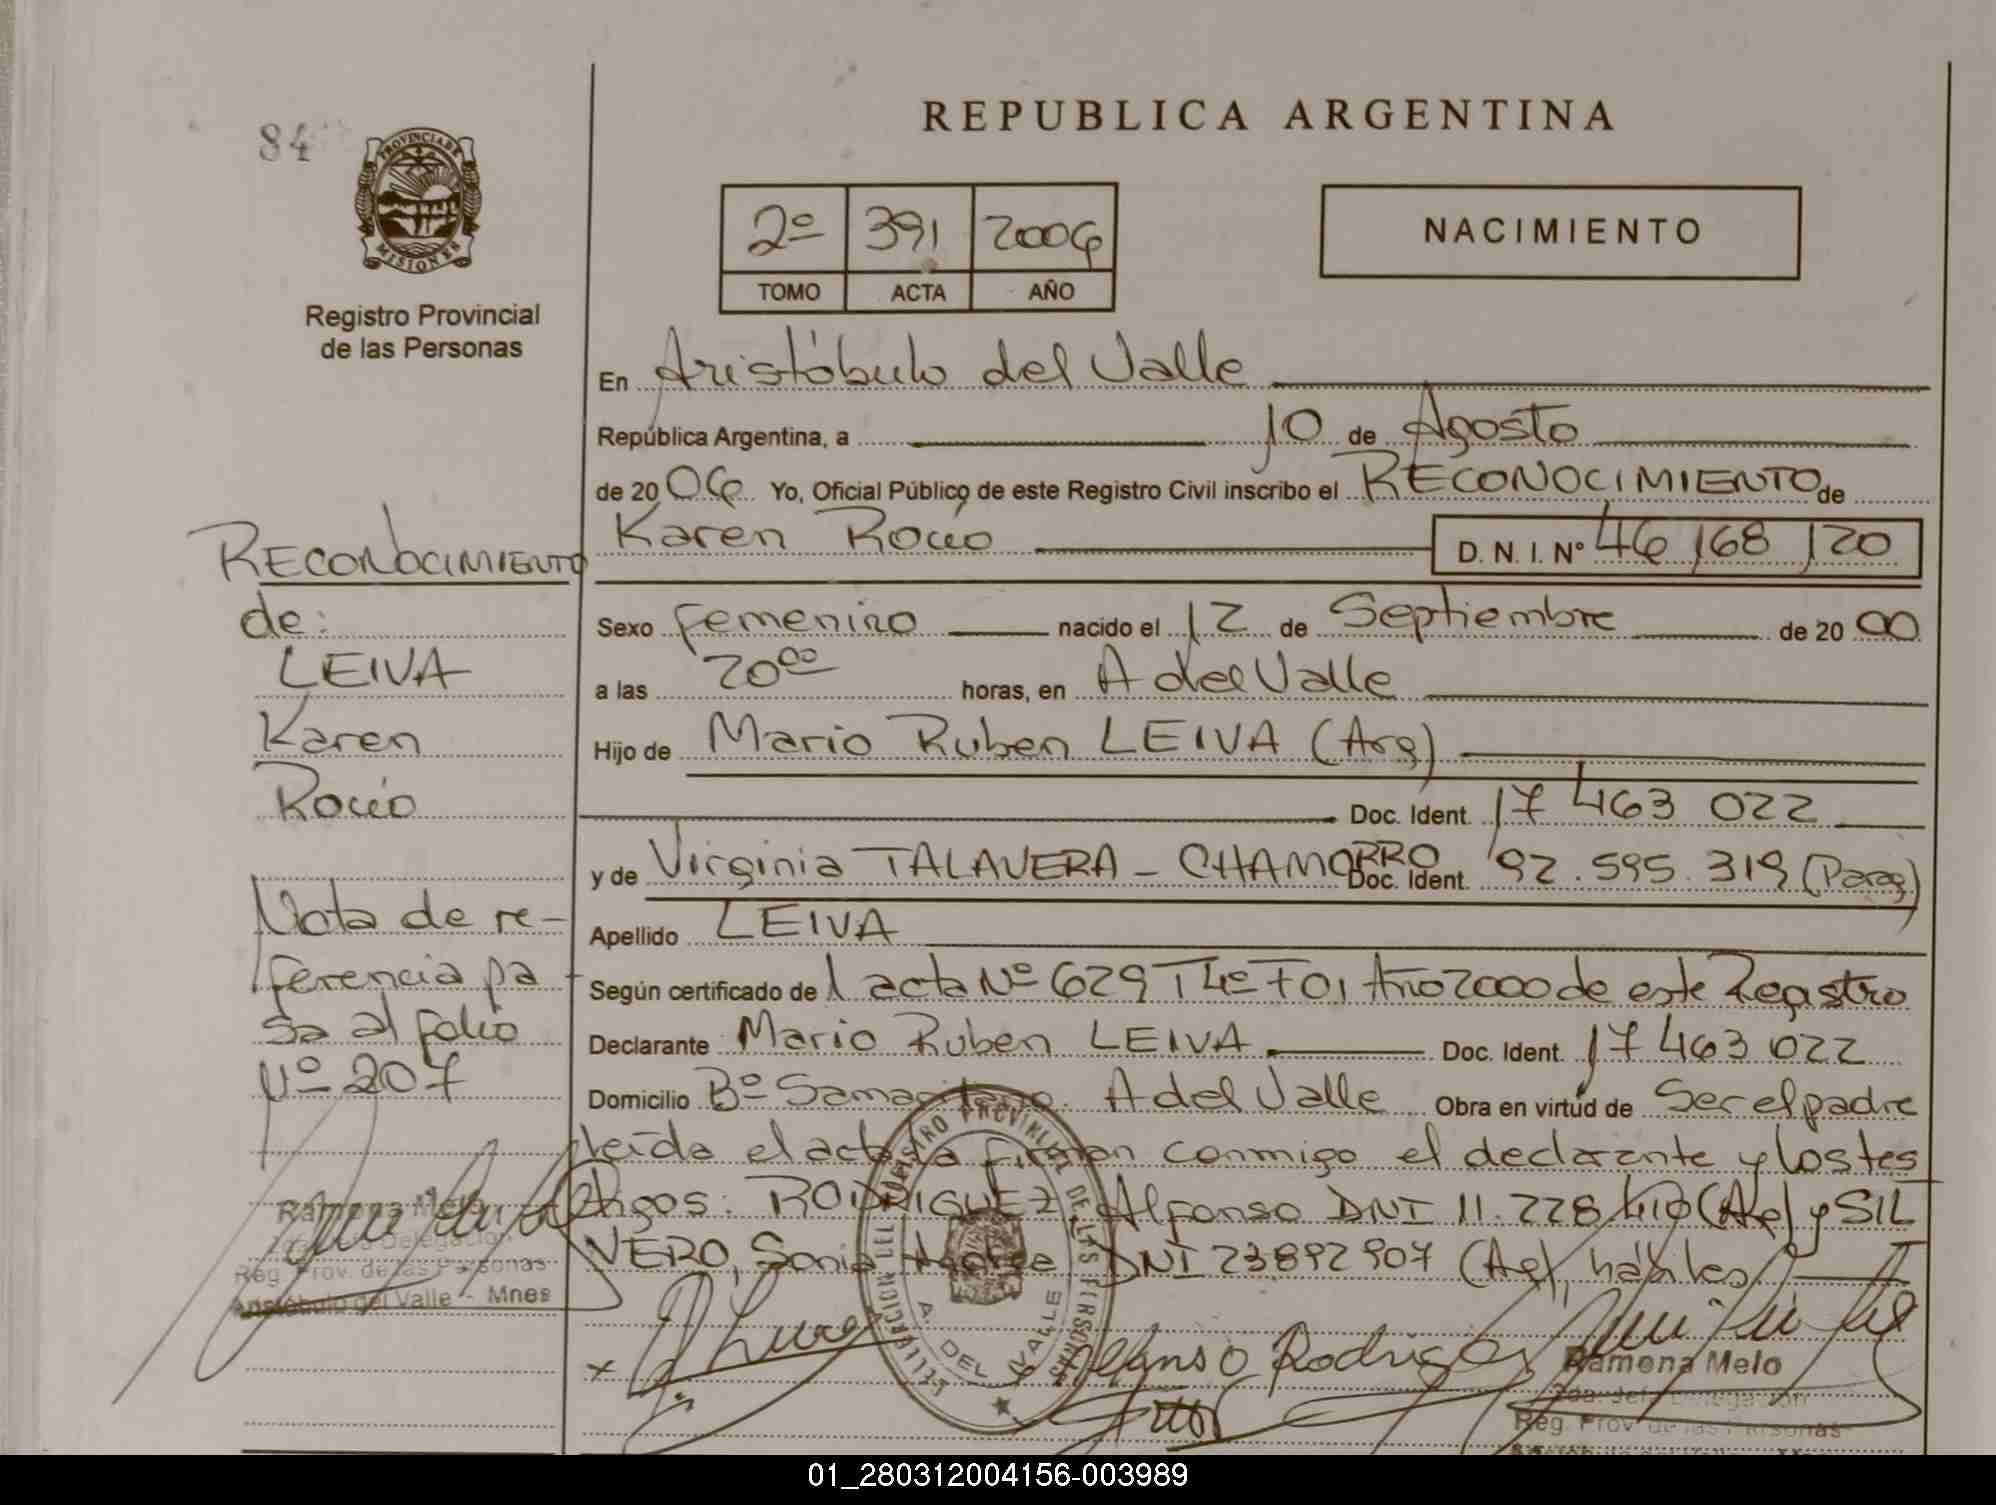 84
PROVINCIA DE
MISIONES
Registro Provincial
de las Personas
REPUBLICA ARGENTINA
2º 391 2006
TOMO ACTA AÑO
NACIMIENTO
En Aristóbulo del Valle
República Argentina, a 10 de Agosto
de 20 06 Yo, Oficial Público de este Registro Civil inscribo el RECONOCIMIENTO de
Karen Rocío D. N. I. Nº 46 168 120
Sexo femenino nacido el 12 de Septiembre de 20 00
a las 20⁰⁰ horas, en A del Valle
Hijo de Mario Ruben LEIVA (Arg)
Doc. Ident. 17 463 022
y de Virginia TALAVERA - CHAMORRO Doc. Ident. 92.595.319 (Parag)
Apellido LEIVA
Según certificado de acta Nº 629 T 4º F 01 Año 2000 de este Registro
Declarante Mario Ruben LEIVA Doc. Ident. 17 463 022
Domicilio Bº Samaritano A del Valle Obra en virtud de Ser el padre
leída el acta la firman conmigo el declarante y los tes
tigos: RODRIGUEZ, Alfonso DNI 11.228.410 (Arg) y SIL
VERO, Sonia DNI 23892907 (Arg), hábiles
RECONOCIMIENTO
de:
LEIVA
Karen
Rocío
Nota de re-
ferencia pa
sa al folio
Nº 207
Ramona Melo
Delegación
Reg. Prov. de las Personas
Aristóbulo del Valle - Mnes
DELEGACION DEL REGISTRO PROVINCIAL DE LAS PERSONAS
A. DEL VALLE
Alfonso Rodriguez
Ramona Melo
2da. Jefe Delegación
Reg. Prov. de las Personas
01_280312004156-003989